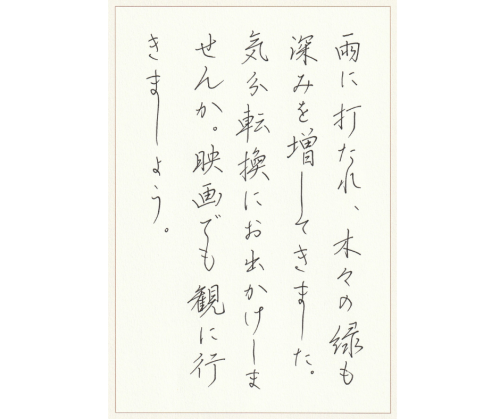 雨に打たれ、木々の緑も
深みを増してきました。
気分転換にお出かけしま
せんか。映画でも観に行
きましょう。